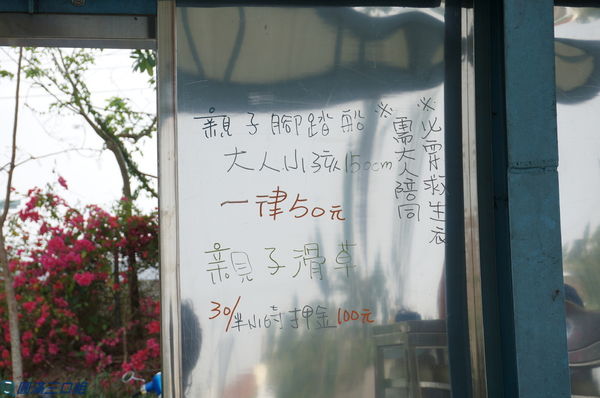 親子腳踏船
大人小孩150cm
一律50元
親子滑草
30/半小時 押金100元
※必穿救生衣
※需大人陪同
圓滿三口組